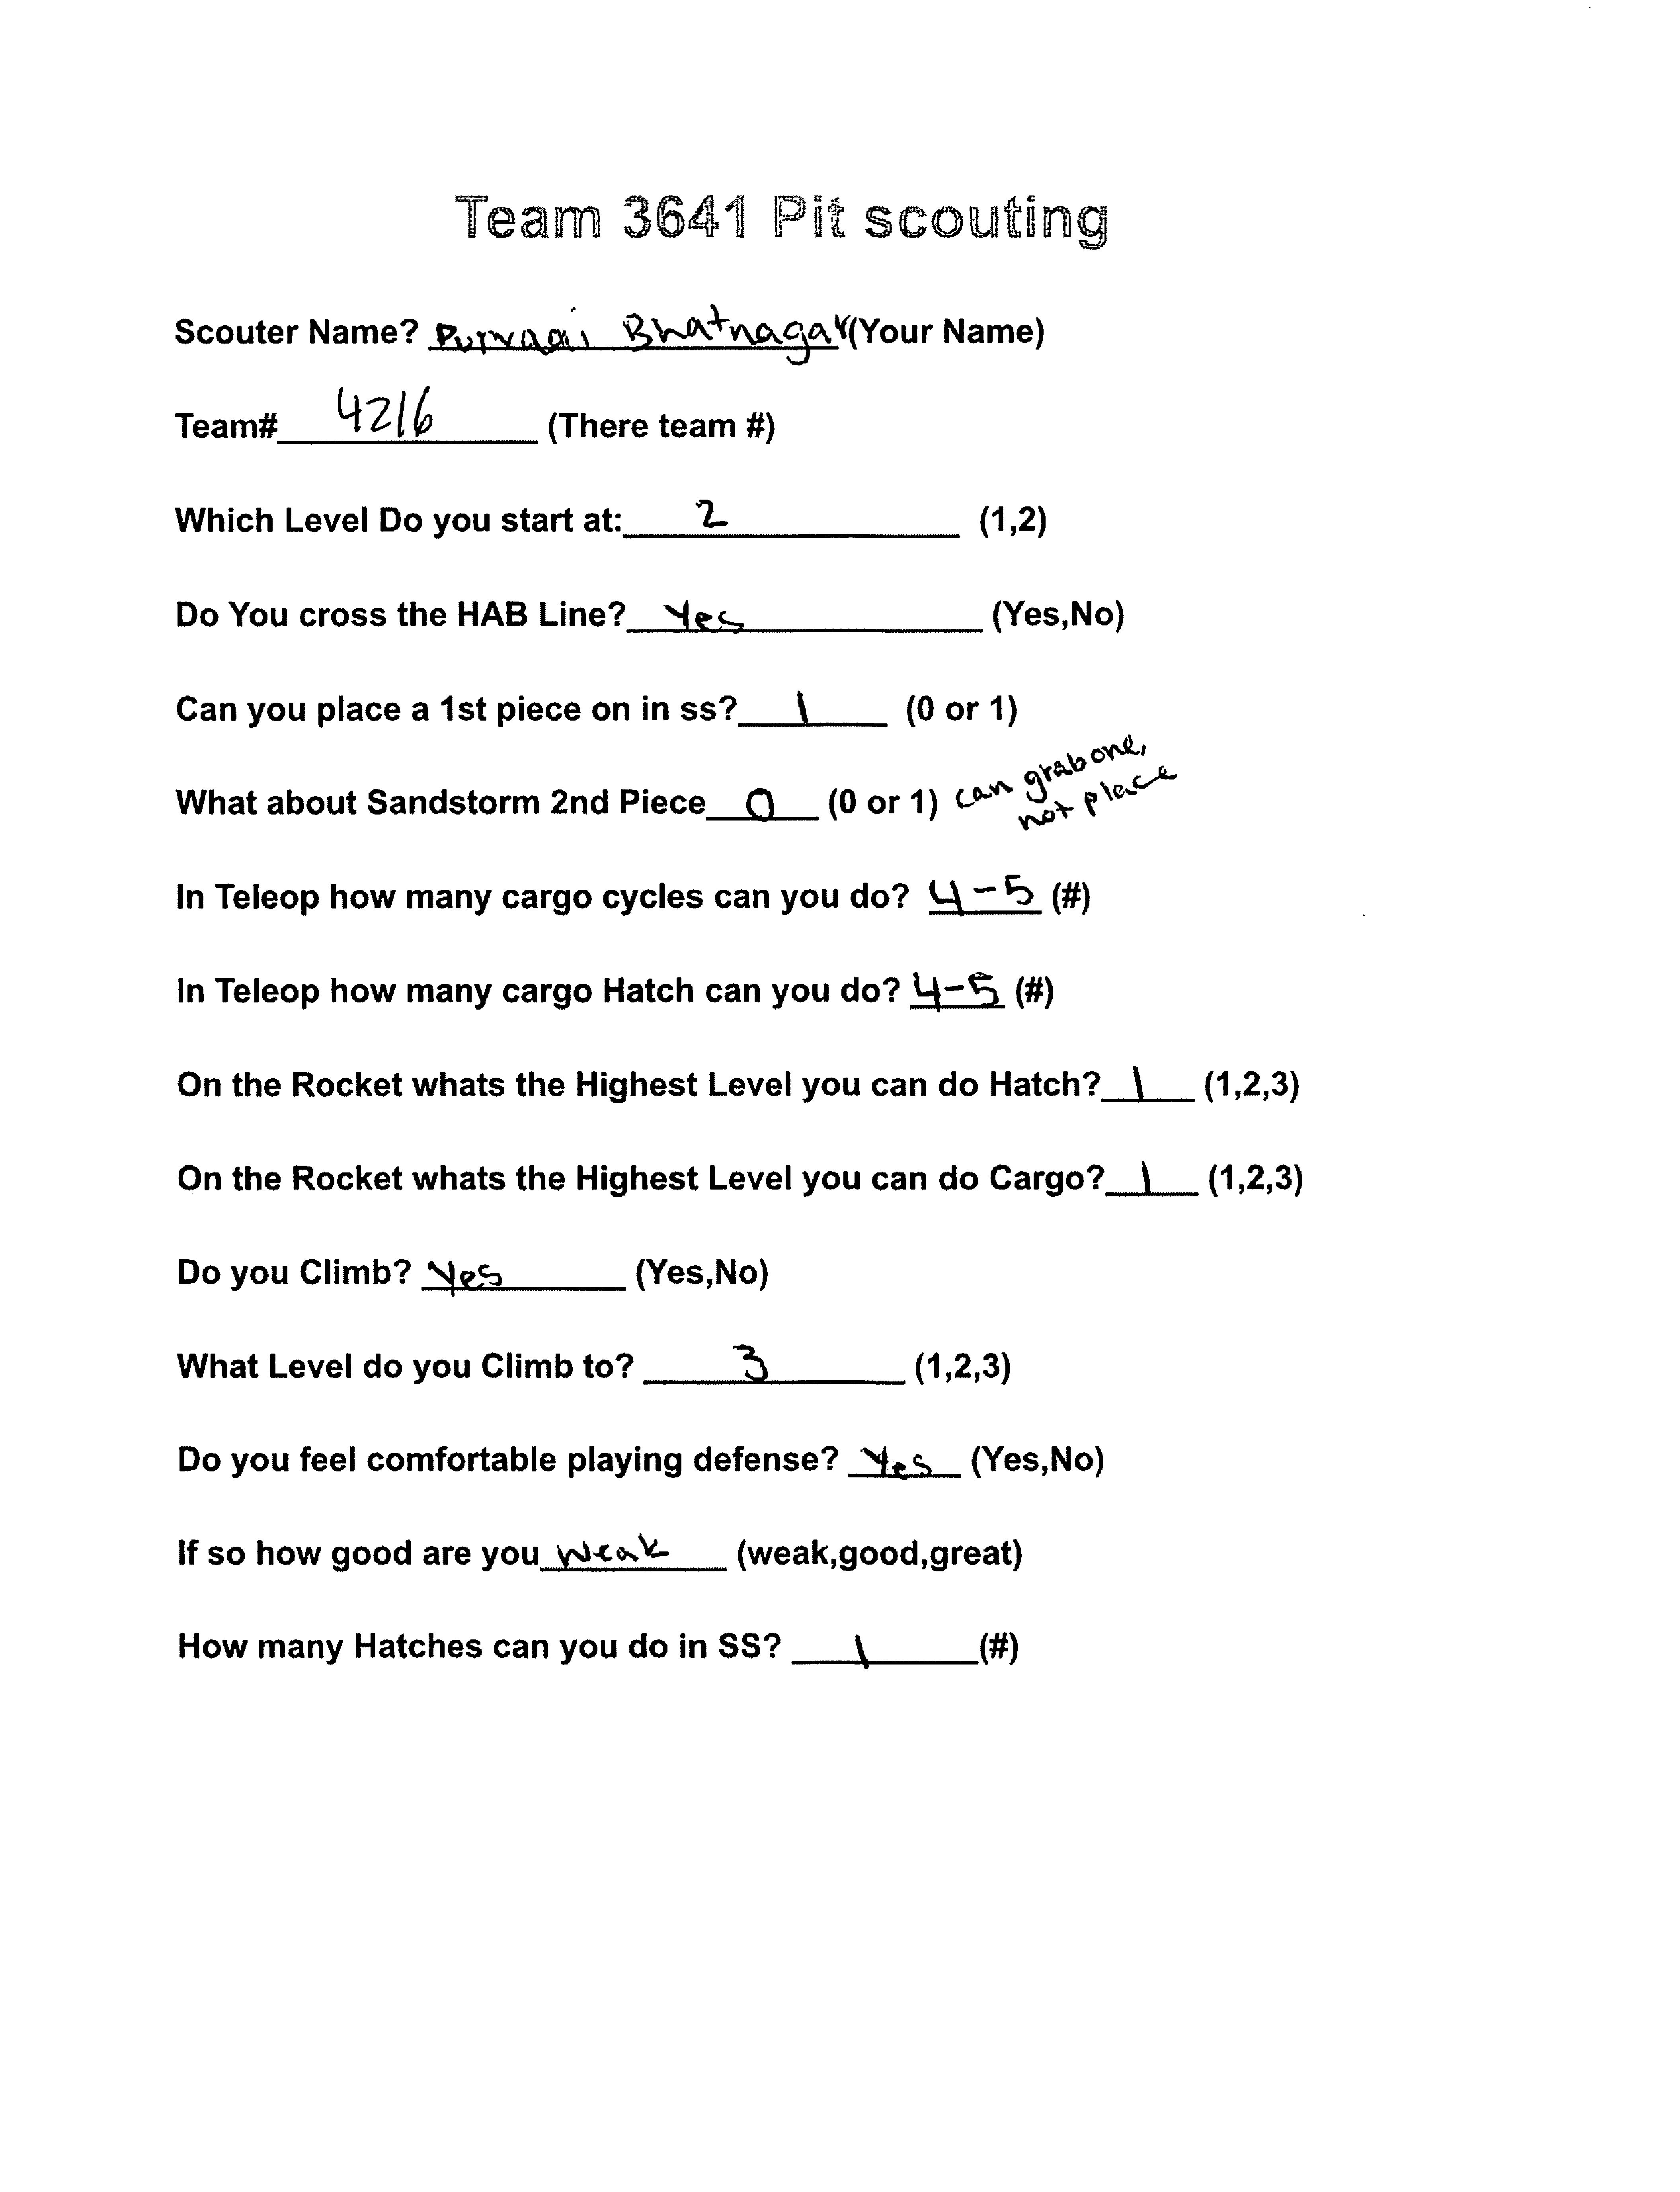 Team 3641 Pit scouting
Scouter Name? Bhatnagar (Your Name)
Team# 4216 (There team #)
Which Level Do you start at: 2 (1,2)
Do You cross the HAB Line? Yes (Yes,No)
Can you place a 1st piece on in ss? 1 (0 or 1)
What about Sandstorm 2nd Piece 0 (0 or 1) can grab one, not place
In Teleop how many cargo cycles can you do? 4-5 (#)
In Teleop how many cargo Hatch can you do? 4-5 (#)
On the Rocket whats the Highest Level you can do Hatch? 1 (1,2,3)
On the Rocket whats the Highest Level you can do Cargo? 1 (1,2,3)
Do you Climb? Yes (Yes,No)
What Level do you Climb to? 3 (1,2,3)
Do you feel comfortable playing defense? Yes (Yes,No)
If so how good are you weak (weak,good,great)
How many Hatches can you do in SS? 1 (#)